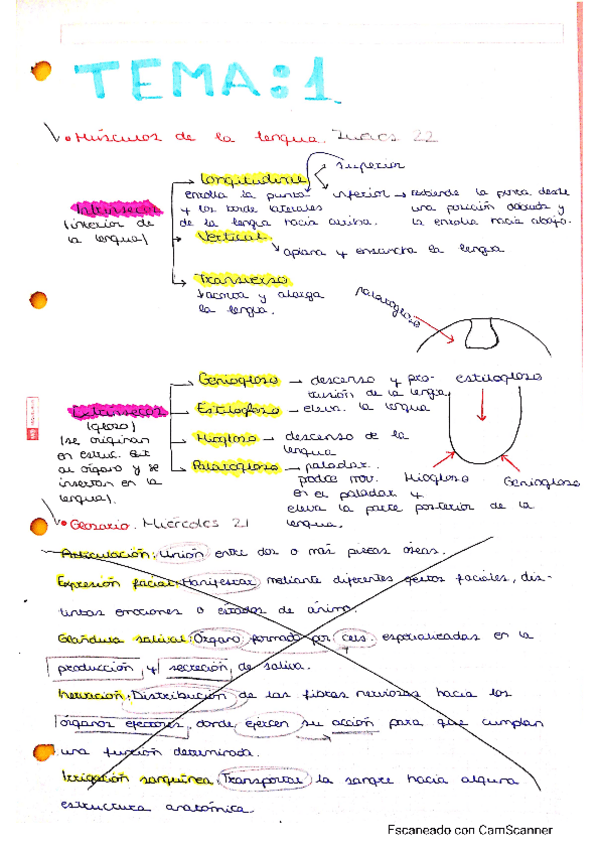 TEMA:1
• Músculos de la lengua. Jueves 22
Intrínsecos
(interior de
la lengua)
Longitudinal
enrolla la punta
y los borde laterales
de la lengua hacia arriba.
superior
inferior → redonde la punta desde
una posición elevada y
la enrolla hacia abajo.
Vertical
aplana y ensancha la lengua
Transverso
acorta y alarga
la lengua.
Palatogloso
Extrínsecos
(gloso)
(se originan
en estruc. ext
al órgano y se
insertan en la
lengua).
Geniogloso → descenso y pro-
trusión de la lengua
Estilogloso → elev. la lengua
Hiogloso → descenso de la
lengua
Palatogloso → paladar.
produce mov.
en el paladar y
eleva la parte posterior de la
lengua.
estilogloso
Hiogloso
Geniogloso
• Glosario. Miércoles 21
Articulación: Unión entre dos o más piezas óseas.
Expresión facial: Manifestar mediante diferentes gestos faciales, dis-
tintas emociones o estados de ánimo.
Glándula salival: Órgano formado por céls. especializadas en la
producción y secreción de saliva.
Inervación: Distribución de las fibras nerviosas hacia los
órganos efectores, donde ejercen su acción para que cumplan
una función determinada.
Irrigación sanguínea: Transportar la sangre hacia alguna
estructura anatómica.
Escaneado con CamScanner